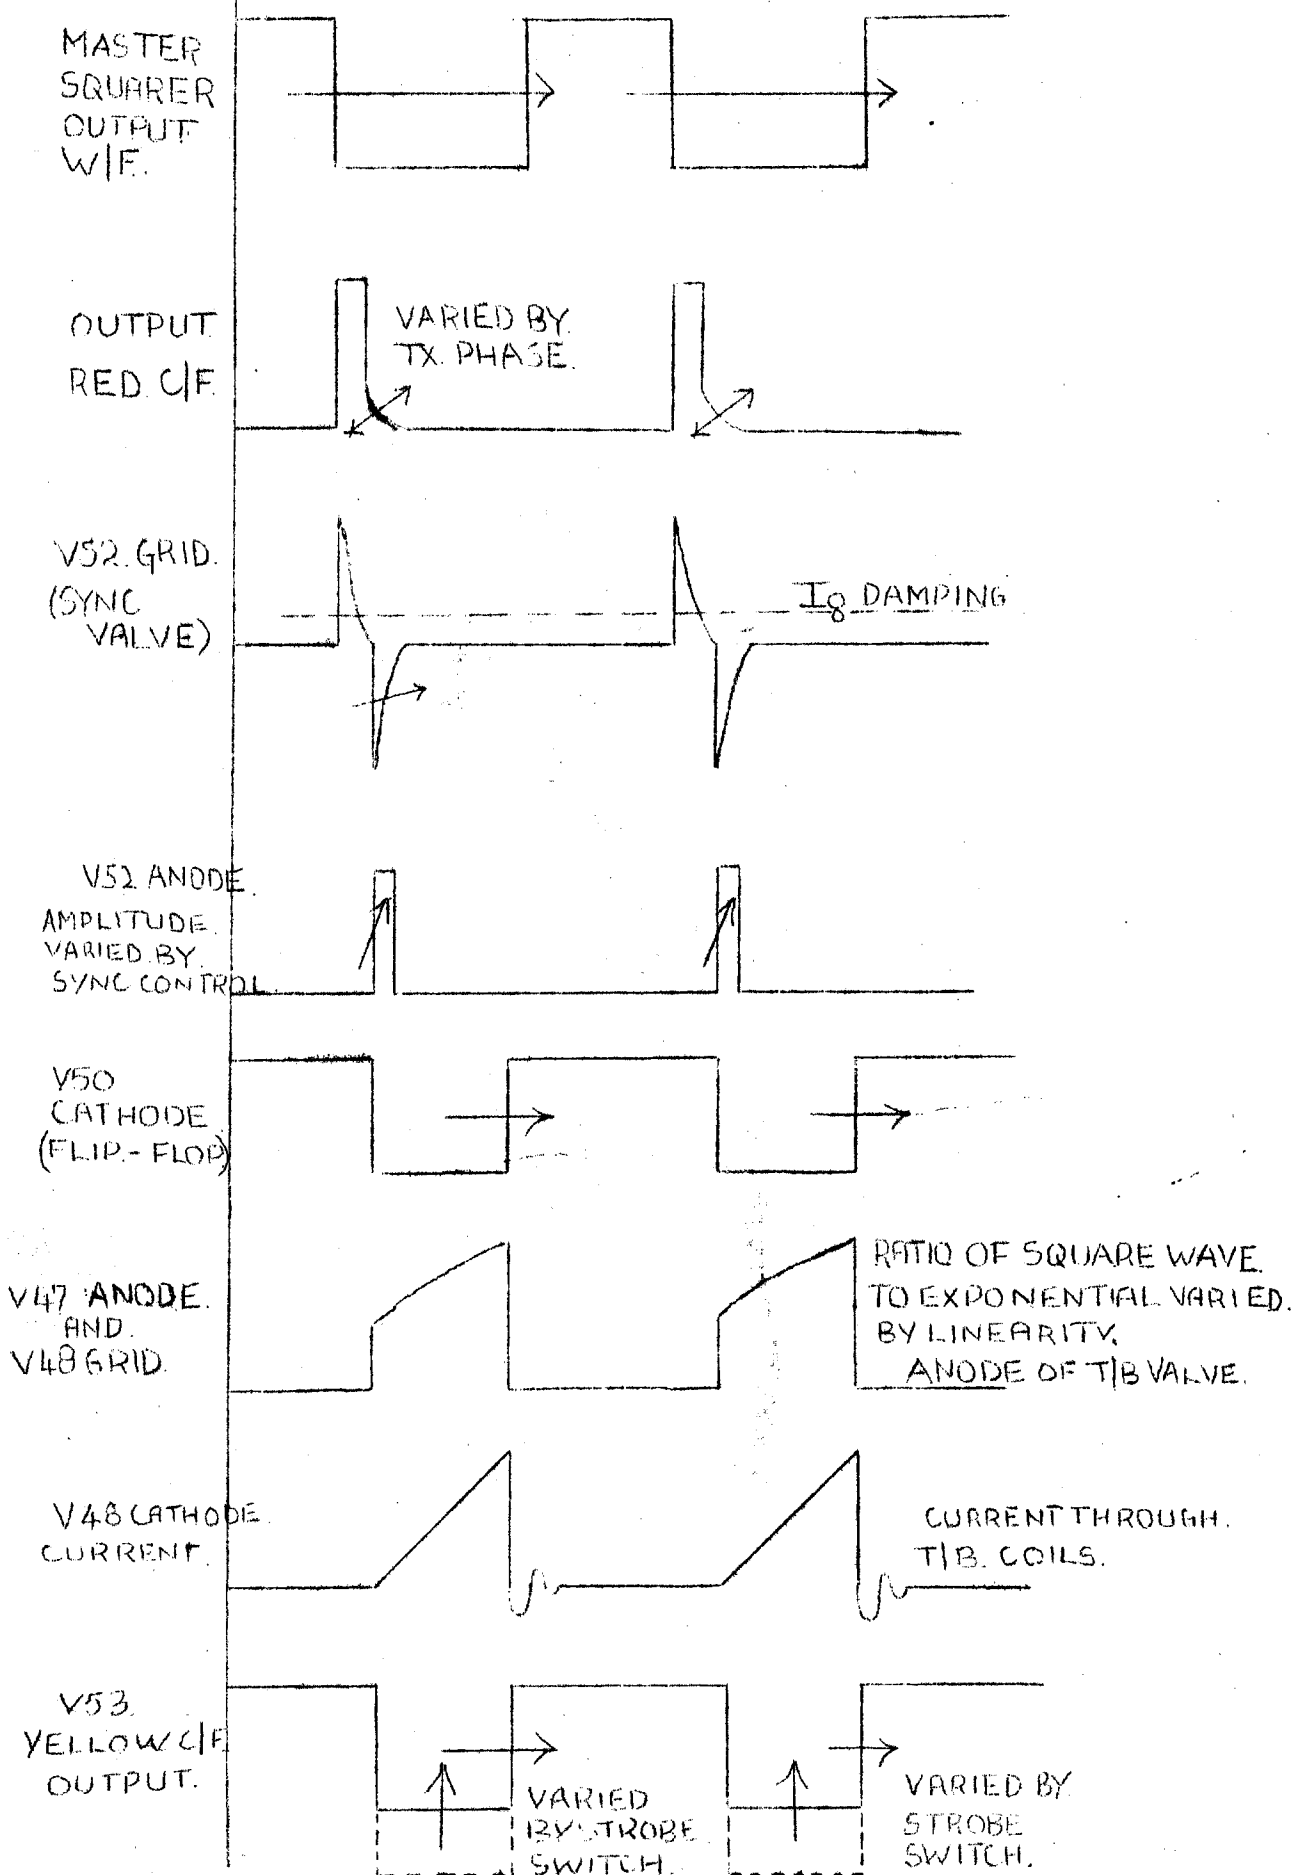 MASTER
SQUARER
OUTPUT
W/F.
OUTPUT
RED. C/F.
VARIED BY.
TX. PHASE.
V52. GRID.
(SYNC
VALVE)
Ig DAMPING
V52 ANODE.
AMPLITUDE.
VARIED. BY.
SYNC CONTROL.
V50
CATHODE
(FLIP.- FLOP)
V47 ANODE.
AND.
V48 GRID.
RATIO OF SQUARE WAVE.
TO EXPONENTIAL VARIED.
BY LINEARITY.
ANODE OF T/B VALVE.
V48 CATHODE.
CURRENT.
CURRENT THROUGH.
T/B. COILS.
V53.
YELLOW C/F
OUTPUT.
VARIED
BY STROBE
SWITCH.
VARIED BY
STROBE
SWITCH.